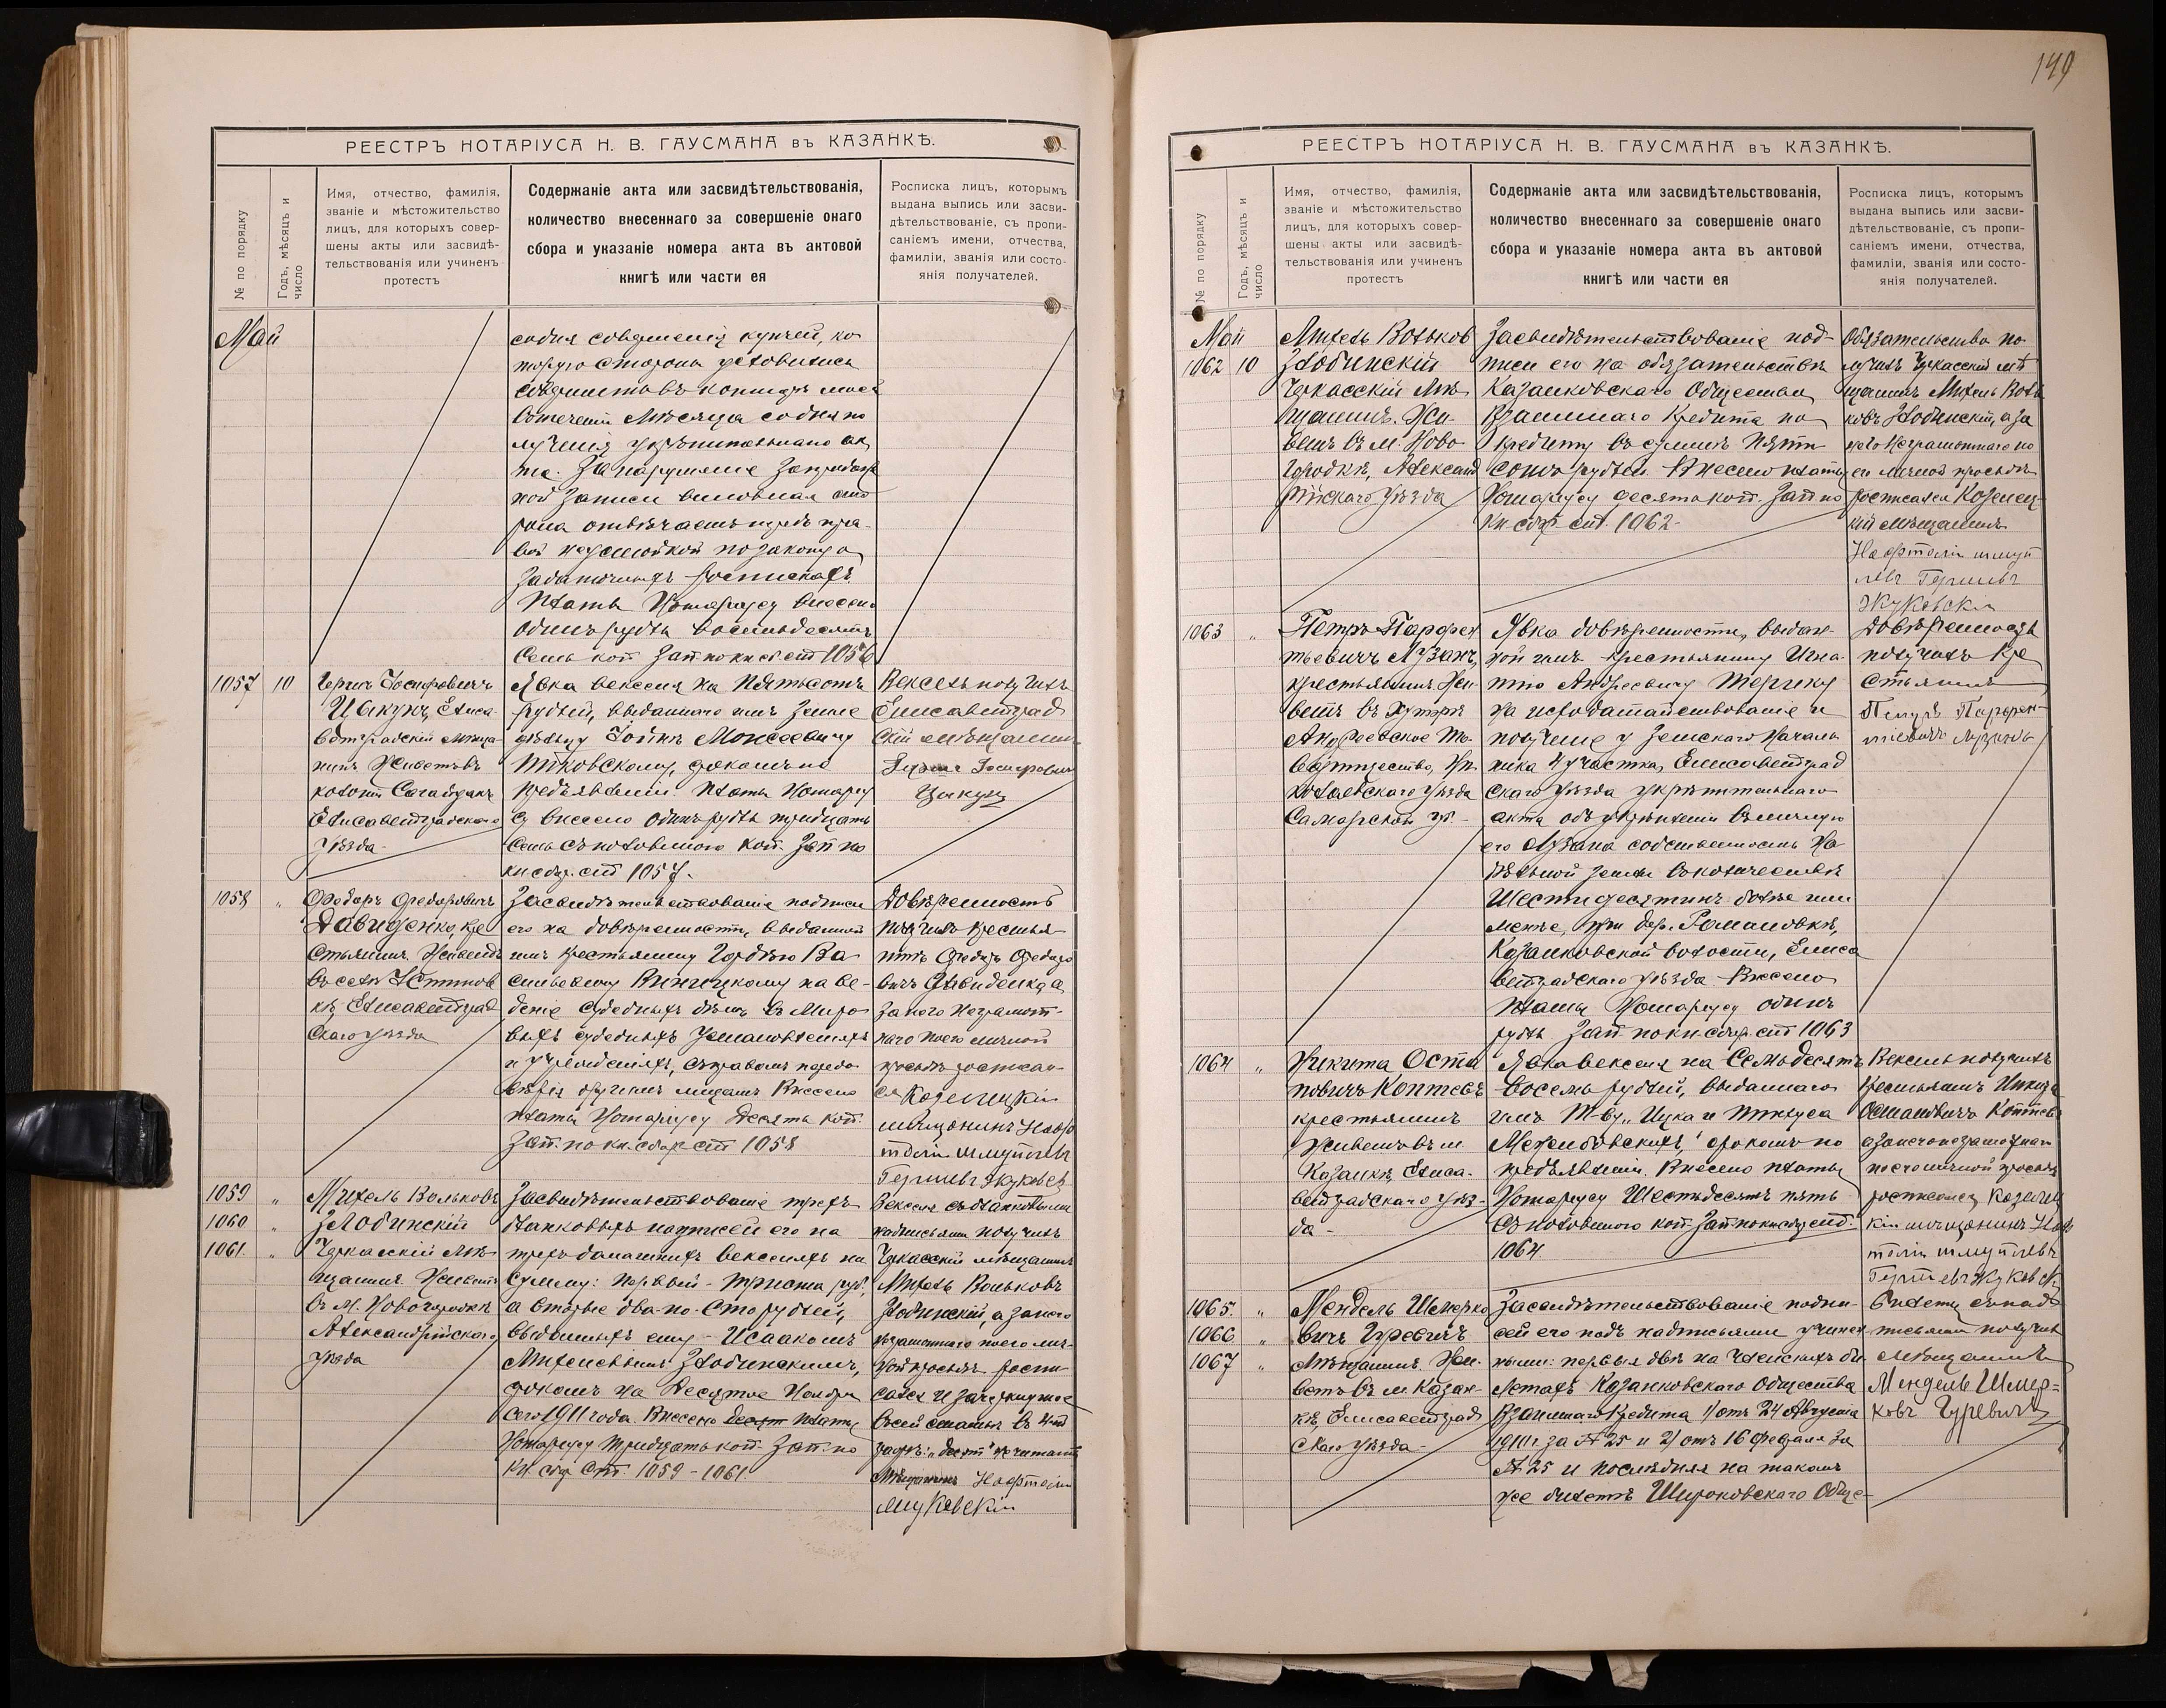 149
РЕЕСТРЪ НОТАРІУСА Н. В. ГАУСМАНА въ КАЗАНКѢ.
№ по порядку
Годъ, мѣсяцъ и
число
Имя, отчество, фамилія,
званіе и мѣстожительство
лицъ, для которыхъ совер-
шены акты или засвидѣ-
тельствованія или учиненъ
протестъ
Содержаніе акта или засвидѣтельствованія,
количество внесеннаго за совершеніе онаго
сбора и указаніе номера акта въ актовой
книгѣ или части ея
Росписка лицъ, которымъ
выдана выпись или засви-
дѣтельствованіе, съ пропи-
саніемъ имени, отчества,
фамиліи, званія или состо-
янія получателей.
Май
совершенія купчей, ко
торую стороны условились
совершить въ
теченіи мѣсяца со дня по
лученія укрѣпительнаго ак
та. За нарушеніе запродаж
ной записи виновная сто
рона отвѣчаетъ предъ пра-
вой неустойкой по закону о
задаточныхъ роспискахъ
Платы Нотаріусу внесено
одинъ рубль восемьдесятъ
семь коп. Зап. по кн. сб. ст 1056
1057 10
Іосифовичъ
Цыкунъ, Елиса-
ветградскій мѣща-
нинъ Живетъ въ
колоніи Сагайдакъ
Елисаветградскаго
уѣзда
Явка векселя на пятьсотъ
рублей, выданнаго имъ земле
дѣльцу Моисеевичу
срокомъ по
предъявленіи. Платы Нотаріу
су внесено одинъ рубль тридцать
семь съ половиною коп. Зап. по
кн. сбор. ст 1057.
Вексель получилъ
Елисаветград
скій мѣщанинъ
Іосифовичъ
Цыкунъ
1058 "
Федоръ Федоровичъ
Давиденко, кре
стьянинъ Живетъ
въ селѣ Устинов
кѣ, Елисаветград
скаго уѣзда
Засвидѣтельствованіе подписи
его на довѣренности, выданной
имъ крестьянину Гордѣю Ва
сильевичу Винницкому на ве-
деніе судебныхъ дѣлъ въ Миро
выхъ судебныхъ установленіяхъ
и учрежденіяхъ, съ правомъ передо
вѣрія другимъ лицамъ Внесено
платы Нотаріусу десять коп.
Зап. по кн. сбор. ст 1058
Довѣренность
получилъ крестья
нинъ Федоръ Федоро
вичъ Давиденко, а
за него неграмот-
наго по его личной
просьбѣ росписал-
ся Козелецкій
мѣщанинъ Нафо
толій Шмуйлевъ
Гершевъ Жуковск
1059 "
1060 "
1061 "
Михель Вольковъ
Злобинскій
Черкасскій мѣ-
щанинъ. Живетъ
въ м. Новогородкѣ
Александрійскаго
уѣзда
Засвидѣтельствованіе трехъ
бланковыхъ подписей его на
трехъ домашнихъ векселяхъ на
сумму: первый - триста руб.,
а вторые два - по сто рублей,
выданныхъ ему Исаакомъ
Михелевымъ Злобинскимъ,
срокомъ на десятое Ноября
сего 1911 года. Внесено десят платы
Нотаріусу тридцать коп. Зап. по
кн. сбр. ст. 1059 - 1061
Векселя съ бланковыми
надписями получилъ
Черкасскій мѣщанинъ
Михель Вольковъ
Злобинскій, а за него
неграмотнаго по его лич-
ной просьбѣ роспи-
сался и зачеркнутое
въ сей статьѣ въ 4й
графѣ: "десят" не читать
Мѣщанинъ Нафтолій
Жуковскій
РЕЕСТРЪ НОТАРІУСА Н. В. ГАУСМАНА въ КАЗАНКѢ.
№ по порядку
Годъ, мѣсяцъ и
число
Имя, отчество, фамилія,
званіе и мѣстожительство
лицъ, для которыхъ совер-
шены акты или засвидѣ-
тельствованія или учиненъ
протестъ
Содержаніе акта или засвидѣтельствованія,
количество внесеннаго за совершеніе онаго
сбора и указаніе номера акта въ актовой
книгѣ или части ея
Росписка лицъ, которымъ
выдана выпись или засви-
дѣтельствованіе, съ пропи-
саніемъ имени, отчества,
фамиліи, званія или состо-
янія получателей.
Май
1062 10
Михель Вольковъ
Злобинскій
Черкасскій мѣ-
щанинъ. Жи-
ветъ въ м. Ново-
городкѣ, Александ
рійскаго уѣзда
Засвидѣтельствованіе под-
писи его на обязательствѣ
Казанковскаго Общества
Взаимнаго Кредита по
кредиту въ суммѣ пять
сотъ рублей. Внесено платы
Нотаріусу десять коп. Зап. по
кн. сбор. ст. 1062-
Обязательство по-
лучилъ Черкасскій мѣ
щанинъ Михель Воль
ковъ Злобинскій, а за
него неграмотнаго по
его личной просьбѣ
росписался Козелец-
кій мѣщанинъ
Нафтолій Шмуй
левъ Гершевъ
Жуковскій
1063 "
Петръ Парфен
тьевичъ Лузанъ,
крестьянинъ Жи-
ветъ въ хуторѣ
Андреевское То-
варищество, Ни-
колаевскаго уѣзда
Самарской губ. -
Явка довѣренности, выдан-
ной имъ крестьянину Игна-
тію Андреевичу Тернику
на исходатайствованіе и
полученіе у Земскаго Началь
ника 4 участка, Елисаветград
скаго уѣзда укрѣпительнаго
акта объ укрѣпленіи въ личную
его Лузана собственность на
дѣльной земли въ количествѣ
шести десятинъ болѣе или
менѣе, при дер. Романовкѣ,
Казанковской волости, Елиса
ветградскаго уѣзда Внесено
платы Нотаріусу одинъ
рубль Зап. по кн. сбор. ст 1063
Довѣренность
получилъ кре
стьянинъ
Петръ Парфен-
тіевичъ Лузанъ
1064 "
Никита Оста
повичъ Коптевъ
крестьянинъ
Живетъ въ м
Казанкѣ, Елиса-
ветградскаго уѣз-
да -
Явка векселя на семьдесятъ
восемь рублей, выданнаго
имъ Т-ву "Ицка и Пинхуса
Межибовскихъ" срокомъ по
предъявленіи. Внесено платы
Нотаріусу шестьдесятъ пять
съ половиною коп. Зап. по кн. сбор. ст.
1064.
Вексель получилъ
крестьянинъ Никита
Остаповичъ Коптевъ
а за него неграмотнаго
по его личной просьбѣ
росписался Козелец
кій мѣщанинъ Наф
толій Шмуйлевъ
Гершевъ Жуковск
1065. "
1066 "
1067 "
Мендель Шмерко
вичъ Гуревичъ
Мѣщанинъ. Жи-
ветъ въ м Казан-
кѣ, Елисаветград
скаго уѣзда -
Засвидѣтельствованіе подпи-
сей его подъ надписями учинен
ными: первыя двѣ на членскихъ би-
летахъ Казанковскаго Общества
Взаимнаго Кредита 1/ отъ 24 Августа
1910 г за № 25 и 2/ отъ 16 февраля за
№ 25 и послѣдняя на такомъ
же билетѣ Широковскаго Обще-
Билеты съ над-
писями получилъ
мѣщанинъ
Мендель Шмер-
ковъ Гуревичъ